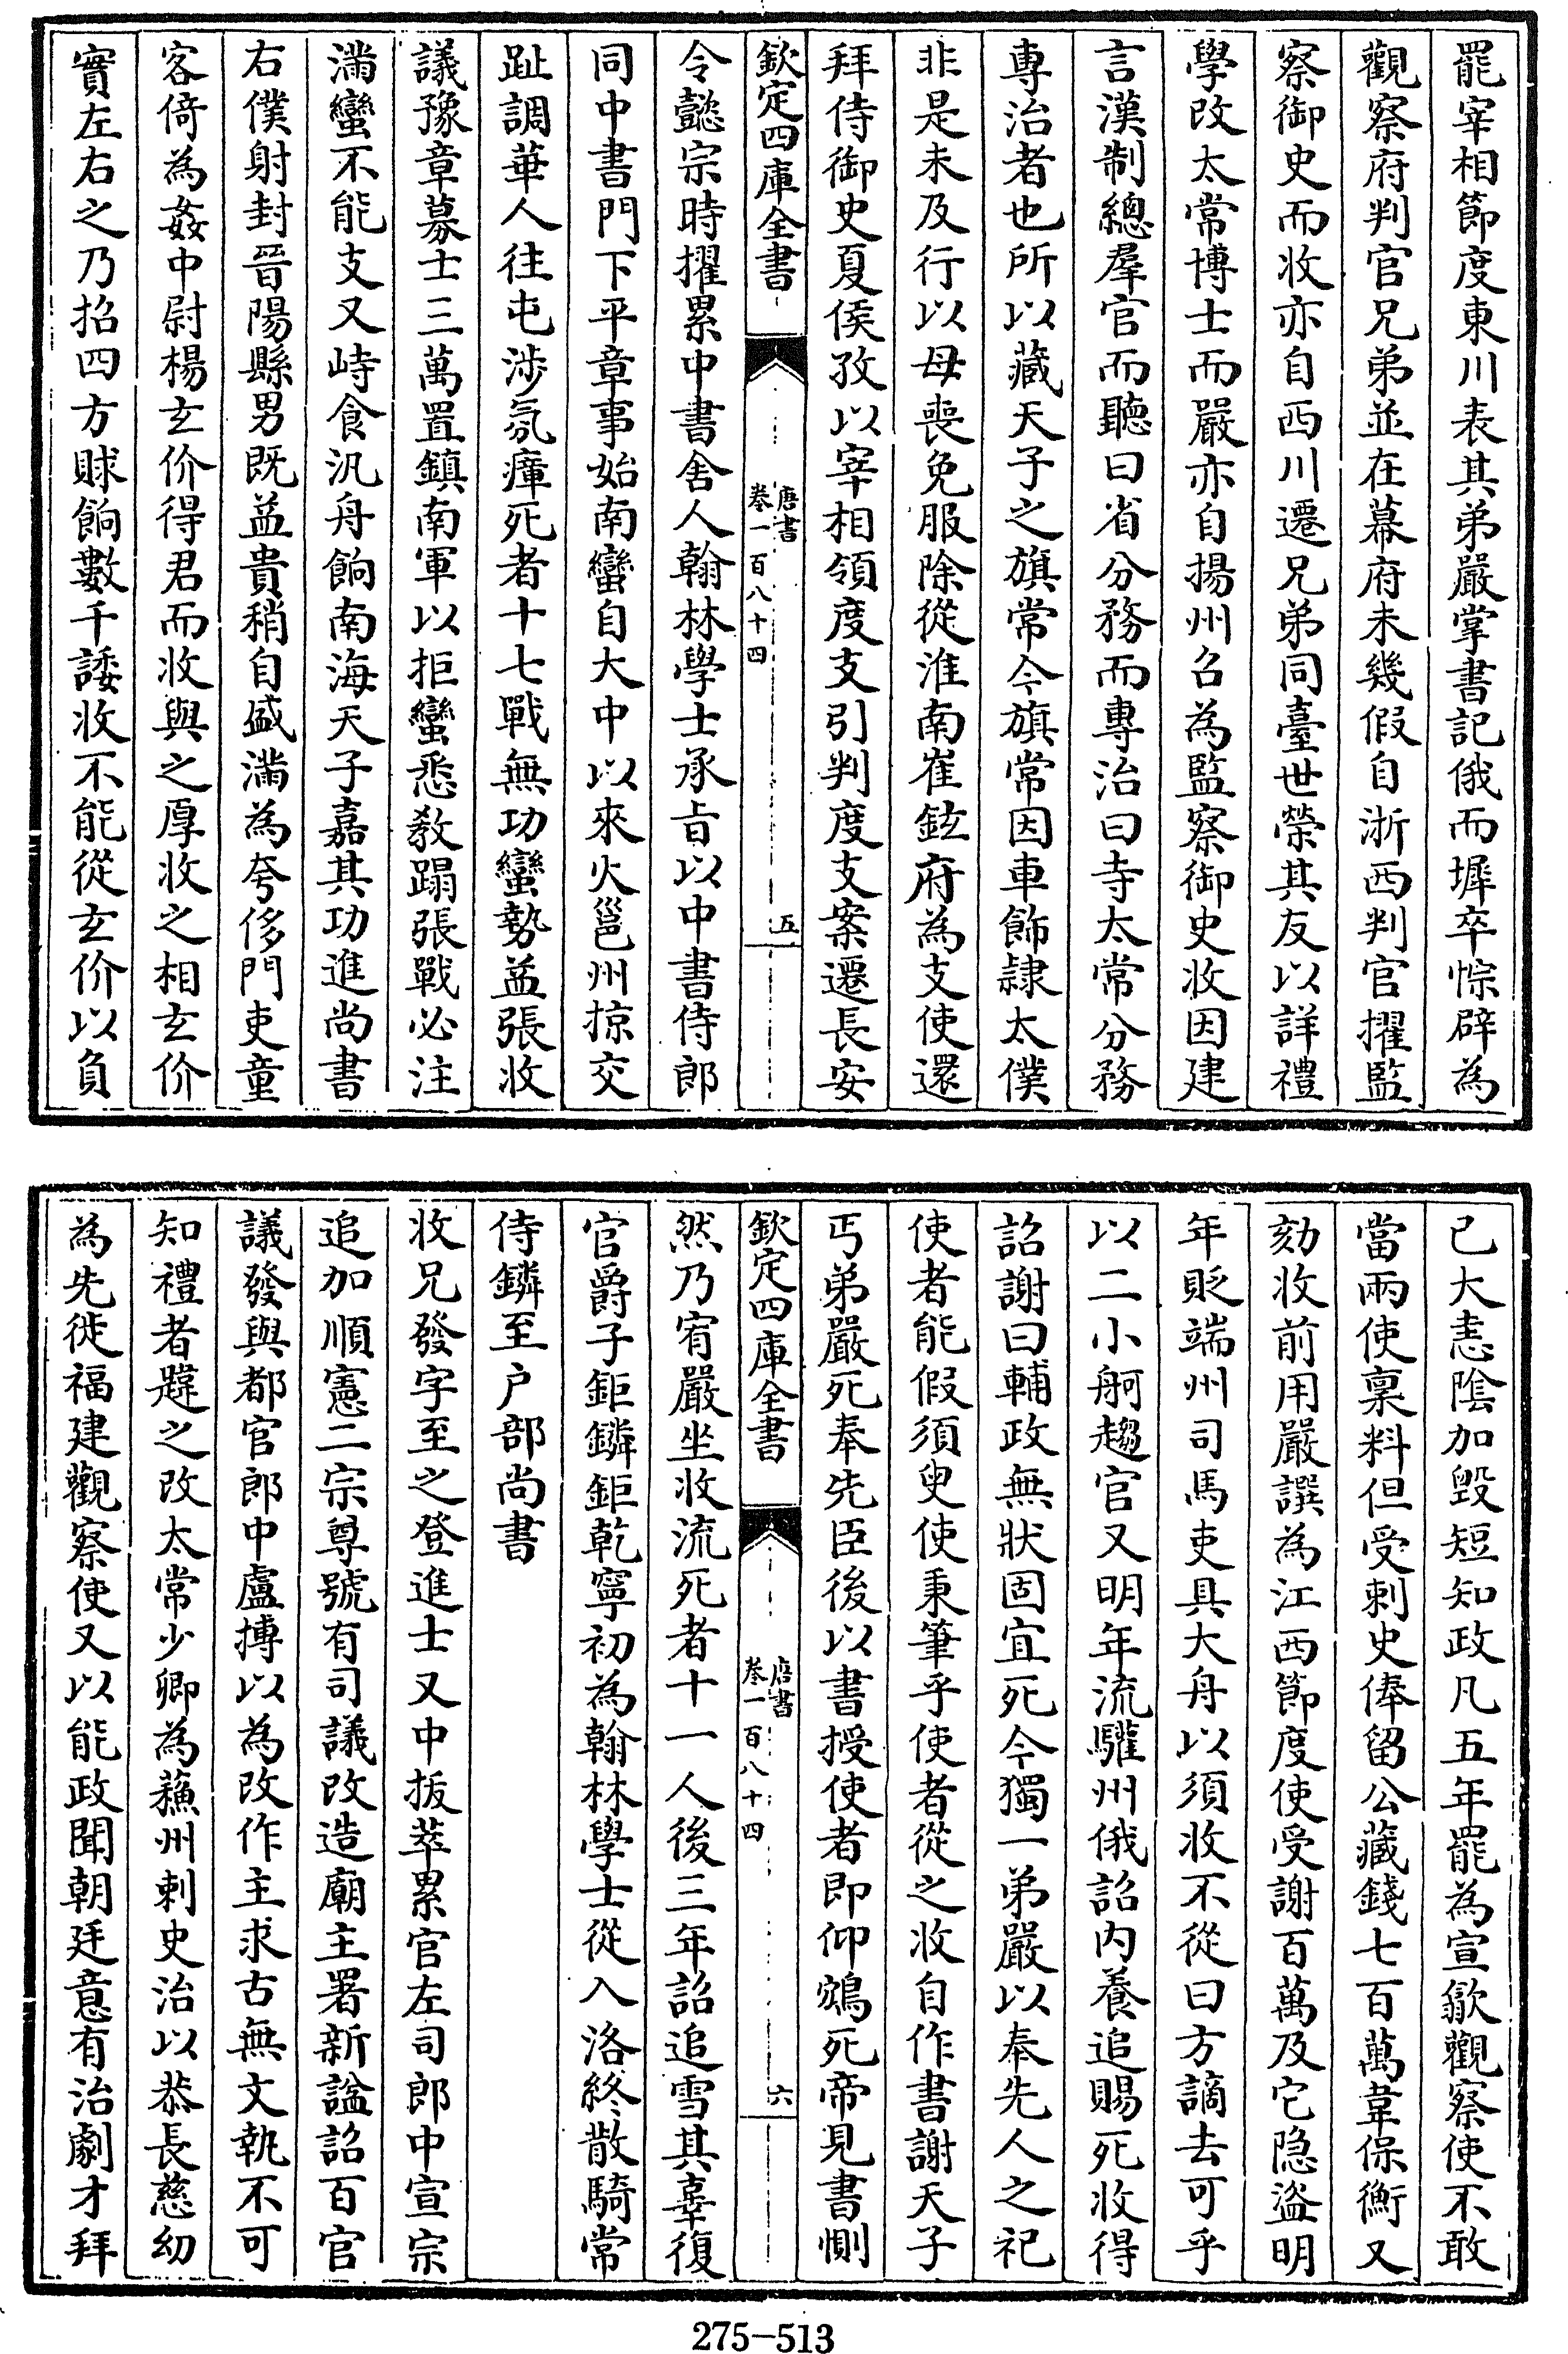 罷宰相節度東川表其弟嚴掌書記俄而墀卒悰辟為
觀察府判官兄弟並在幕府未幾假自浙西判官擢監
察御史而收亦自西川遷兄弟同臺世榮其友以詳禮
學改太常博士而嚴亦自揚州召為監察御史收因建
言漢制總羣官而聽曰省分務而專治曰寺太常分務
專治者也所以藏天子之旗常今旗常因車飾隷太僕
非是未及行以母喪免服除從淮南崔鉉府為支使還
拜侍御史夏侯孜以宰相領度支引判度支案遷長安
欽定四庫全書
唐書
卷一百八十四
五
令懿宗時擢累中書舍人翰林學士承旨以中書侍郎
同中書門下平章事始南蠻自大中以來火邕州掠交
趾調華人往屯涉氛瘴死者十七戰無功蠻勢益張收
議豫章募士三萬置鎮南軍以拒蠻悉教蹋張戰必注
滿蠻不能支又峙食汎舟餉南海天子嘉其功進尚書
右僕射封晉陽縣男既益貴稍自盛滿為夸侈門吏童
客倚為姦中尉楊玄价得君而收與之厚收之相玄价
實左右之乃招四方賕餉數千諉收不能從玄价以負
已大恚陰加毀短知政凡五年罷為宣歙觀察使不敢
當兩使稟料但受刺史俸留公藏錢七百萬韋保衡又
劾收前用嚴譔為江西節度使受謝百萬及它隐盜明
年貶端州司馬吏具大舟以須收不從曰方謫去可乎
以二小舸趨官又明年流驩州俄詔内養追賜死收得
詔謝曰輔政無狀固宜死今獨一弟嚴以奉先人之祀
使者能假須臾使秉筆乎使者從之收自作書謝天子
丐弟嚴死奉先臣後以書授使者即仰鴆死帝見書惻
欽定四庫全書
唐書
卷一百八十四
六
然乃宥嚴坐收流死者十一人後三年詔追雪其辜復
官爵子鉅鏻鉅乾寧初為翰林學士從入洛終散騎常
侍鏻至户部尚書
收兄發字至之登進士又中拔萃累官左司郎中宣宗
追加順憲二宗尊號有司議改造廟主署新諡詔百官
議發與都官郎中盧搏以為改作主求古無文執不可
知禮者韙之改太常少卿為蘓州刺史治以恭長慈幼
為先徙福建觀察使又以能政聞朝廷意有治劇才拜
275-513